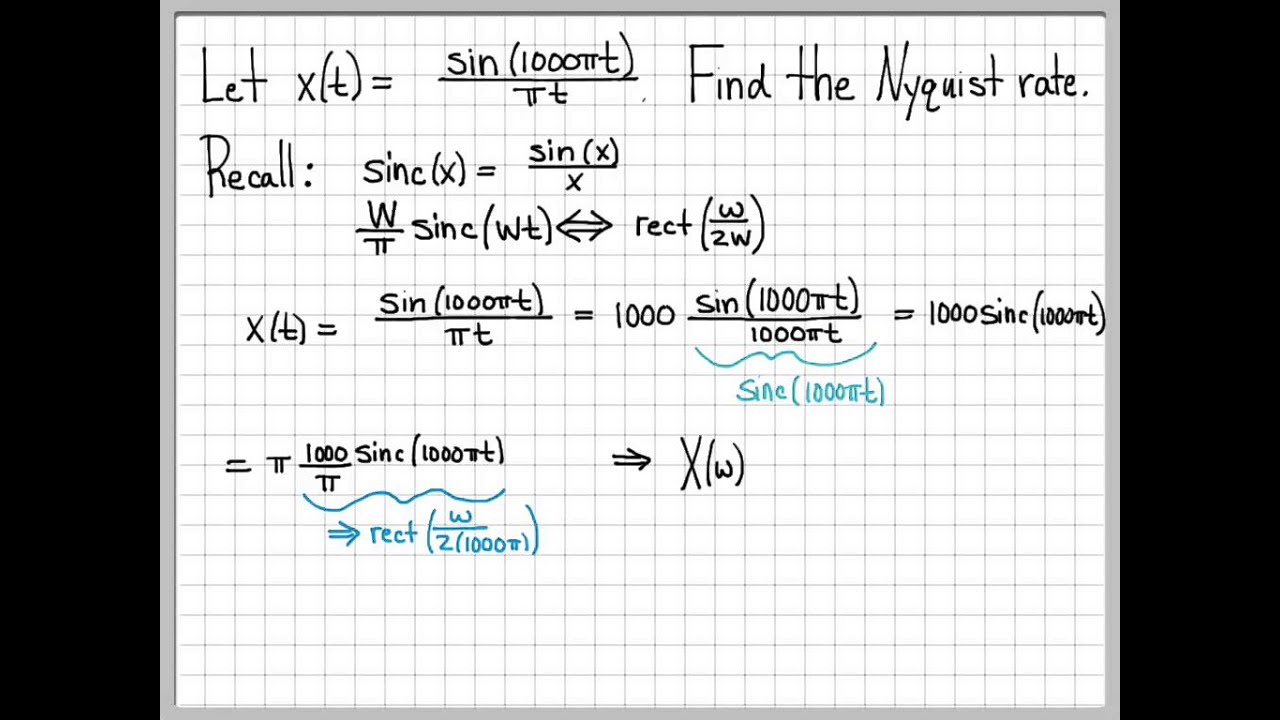 Let x(t) = sin(1000πt)/πt. Find the Nyquist rate.
Recall: sinc(x) = sin(x)/x
W/π sinc(Wt) ⟺ rect(ω/2W)
x(t) = sin(1000πt)/πt = 1000 sin(1000πt)/1000πt = 1000sinc(1000πt)
sinc(1000πt)
= π 1000/π sinc(1000πt) ⇒ X(ω)
⇒ rect(ω/2(1000π))